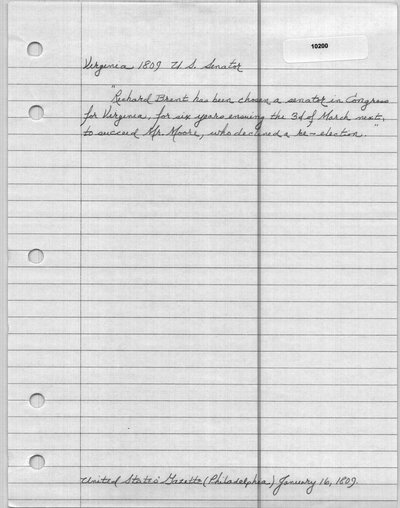 10200
Virginia 1809 U.S. Senator
"Richard Brent has been chosen a senator in Congress
for Virginia, for six years ensuing the 3d of March next,
to succeed Mr. Moore, who declined a re-election."
United States' Gazette (Philadelphia) January 16, 1809.